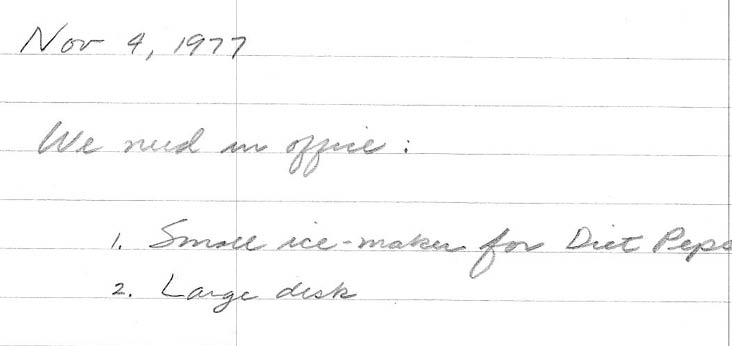 Nov 4, 1977
We need in office:
1. Small ice-maker for Diet Peps
2. Large desk